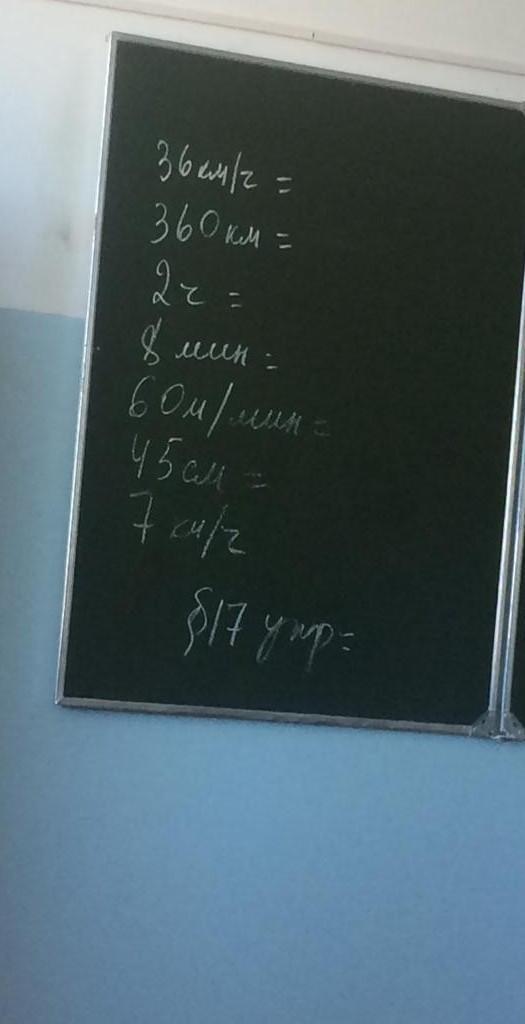 36км/ч =
360км =
2ч =
8 мин =
60м/мин =
45см =
7 км/ч
§17 упр=